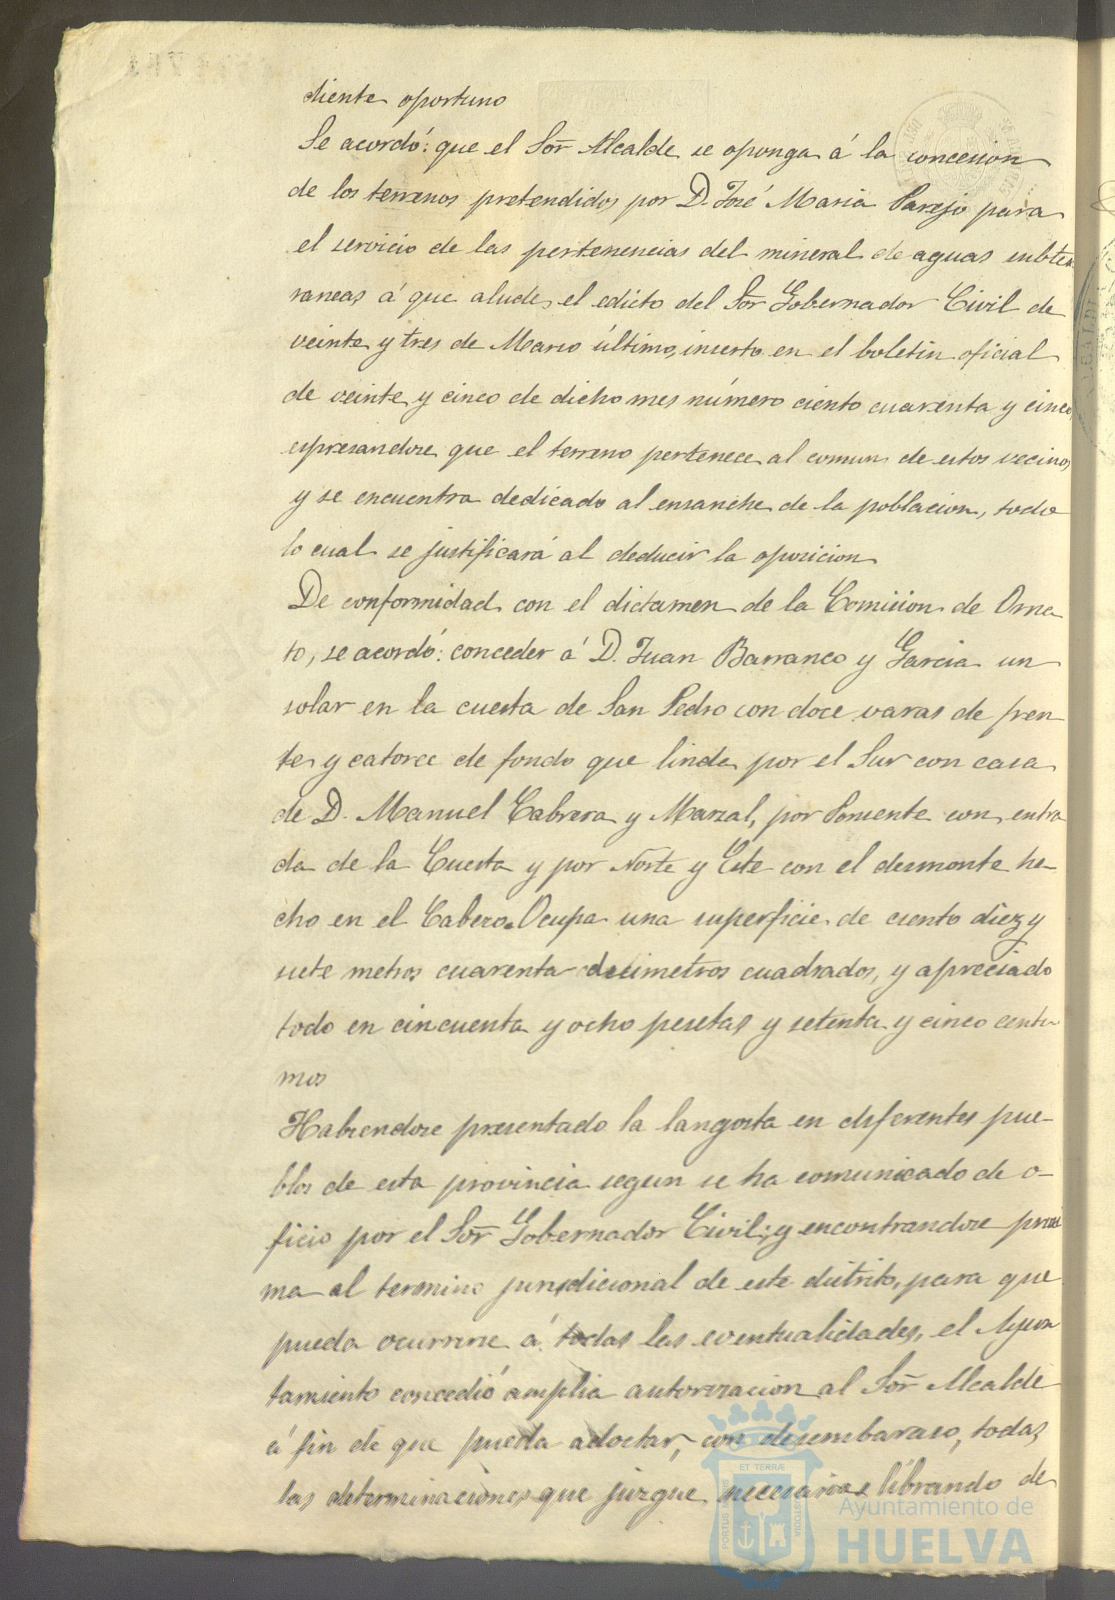 diente oportuno
Se acordó: que el Sor Alcalde se oponga á la concesion
de los terrenos pretendidos por D. José Maria Parejo para
el servicio de las pertenencias del mineral de aguas subter
raneas á que alude el edicto del Sor Gobernador Civil de
veinte y tres de Marzo último, inserto en el boletin oficial
de veinte y cinco de dicho mes número ciento cuarenta y cinco
espresandose que el terreno pertenece al comun de estos vecinos
y se encuentra dedicado al ensanche de la poblacion, todo
lo cual se justificará al deducir la oposicion
De conformidad con el dictamen de la Comision de Orna
to, se acordó: conceder á D. Juan Barranco y Garcia un
solar en la cuesta de San Pedro con doce varas de fren
te y catorce de fondo que linda por el Sur con casa
de D. Manuel Cabrera y Marzal, por Poniente con entra
da de la Cuesta y por Norte y Este con el desmonte he-
cho en el Cabezo. Ocupa una superficie de ciento diez y
siete metros cuarenta decimetros cuadrados, y apreciado
todo en cincuenta y ocho pesetas y setenta y cinco centi
mos
Habiendose presentado la langosta en diferentes pue-
blos de esta provincia segun se ha comunicado de o-
ficio por el Sor Gobernador Civil; y encontrandose proxi
ma al termino jurisdicional de este distrito, para que
pueda ocurrirse á todas las eventualidades, el Ayun
tamiento concedió amplia autorizacion al Sor Alcalde
á fin de que pueda adoctar, con desembarazo, todas
las determinaciones que juzgue necesarias librando de
ET TERRÆ
PORTUS
CUSTODIA
Ayuntamiento de
HUELVA